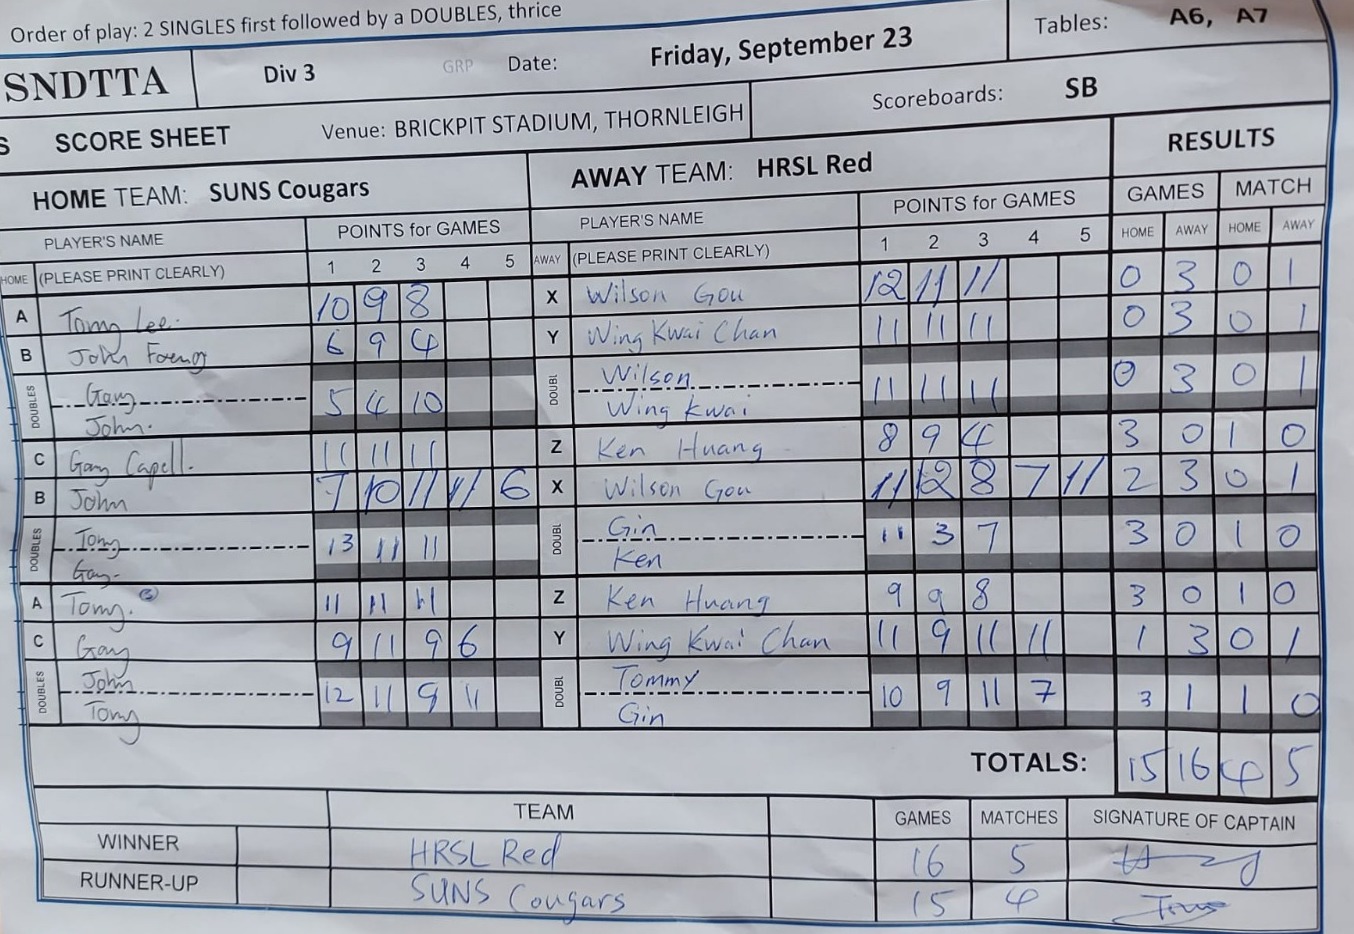 Order of play: 2 SINGLES first followed by a DOUBLES, thrice
Tables: A6, A7
SNDTTA Div 3 GRP Date: Friday, September 23
Scoreboards: SB
S SCORE SHEET Venue: BRICKPIT STADIUM, THORNLEIGH
RESULTS
HOME TEAM: SUNS Cougars AWAY TEAM: HRSL Red
GAMES MATCH
PLAYER'S NAME POINTS for GAMES PLAYER'S NAME POINTS for GAMES
HOME AWAY HOME AWAY
HOME (PLEASE PRINT CLEARLY) 1 2 3 4 5 AWAY (PLEASE PRINT CLEARLY) 1 2 3 4 5
A Tony Lee. 10 9 8 X Wilson Gou 12 11 11 0 3 0 1
B John 6 9 4 Y Wing Kwai Chan 11 11 11 0 3 0 1
DOUBLES Gary 5 4 10 DOUBL Wilson 11 11 11 0 3 0 1
John. Wing Kwai
C Gary Capell. 11 11 11 Z Ken Huang 8 9 4 3 0 1 0
B John 7 10 11 11 6 X Wilson Gou 11 12 8 7 11 2 3 0 1
DOUBLES Tony 13 11 11 DOUBL Gin 11 3 7 3 0 1 0
Gary Ken
A Tony. 11 11 11 Z Ken Huang 9 9 8 3 0 1 0
C Gary 9 11 9 6 Y Wing Kwai Chan 11 9 11 11 1 3 0 1
DOUBLES John 12 11 9 11 DOUBL Tommy 10 9 11 7 3 1 1 0
Tony Gin
TOTALS: 15 16 4 5
TEAM GAMES MATCHES SIGNATURE OF CAPTAIN
WINNER HRSL Red 16 5
RUNNER-UP SUNS Cougars 15 4